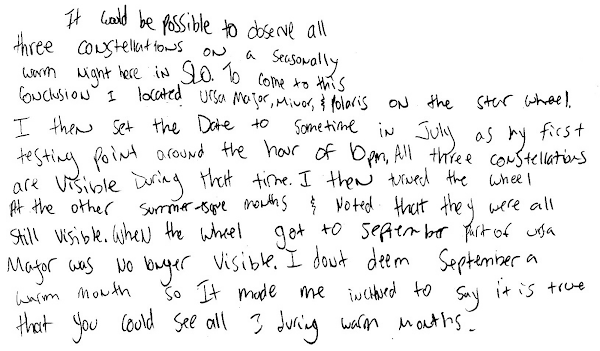 It would be possible to observe all
three constellations on a seasonally
warm night here in SLO. To come to this
conclusion I located Ursa Major, Minor, & Polaris on the star wheel.
I then set the Date to sometime in July as my first
testing point around the hour of 10pm, All three constellations
are visible During that time. I then turned the wheel
At the other summer-esque months & Noted that they were all
still visible. When the wheel got to September part of ursa
Major was no longer visible. I dont deem September a
warm month so It made me inclined to say it is true
that you could see all 3 during warm months.